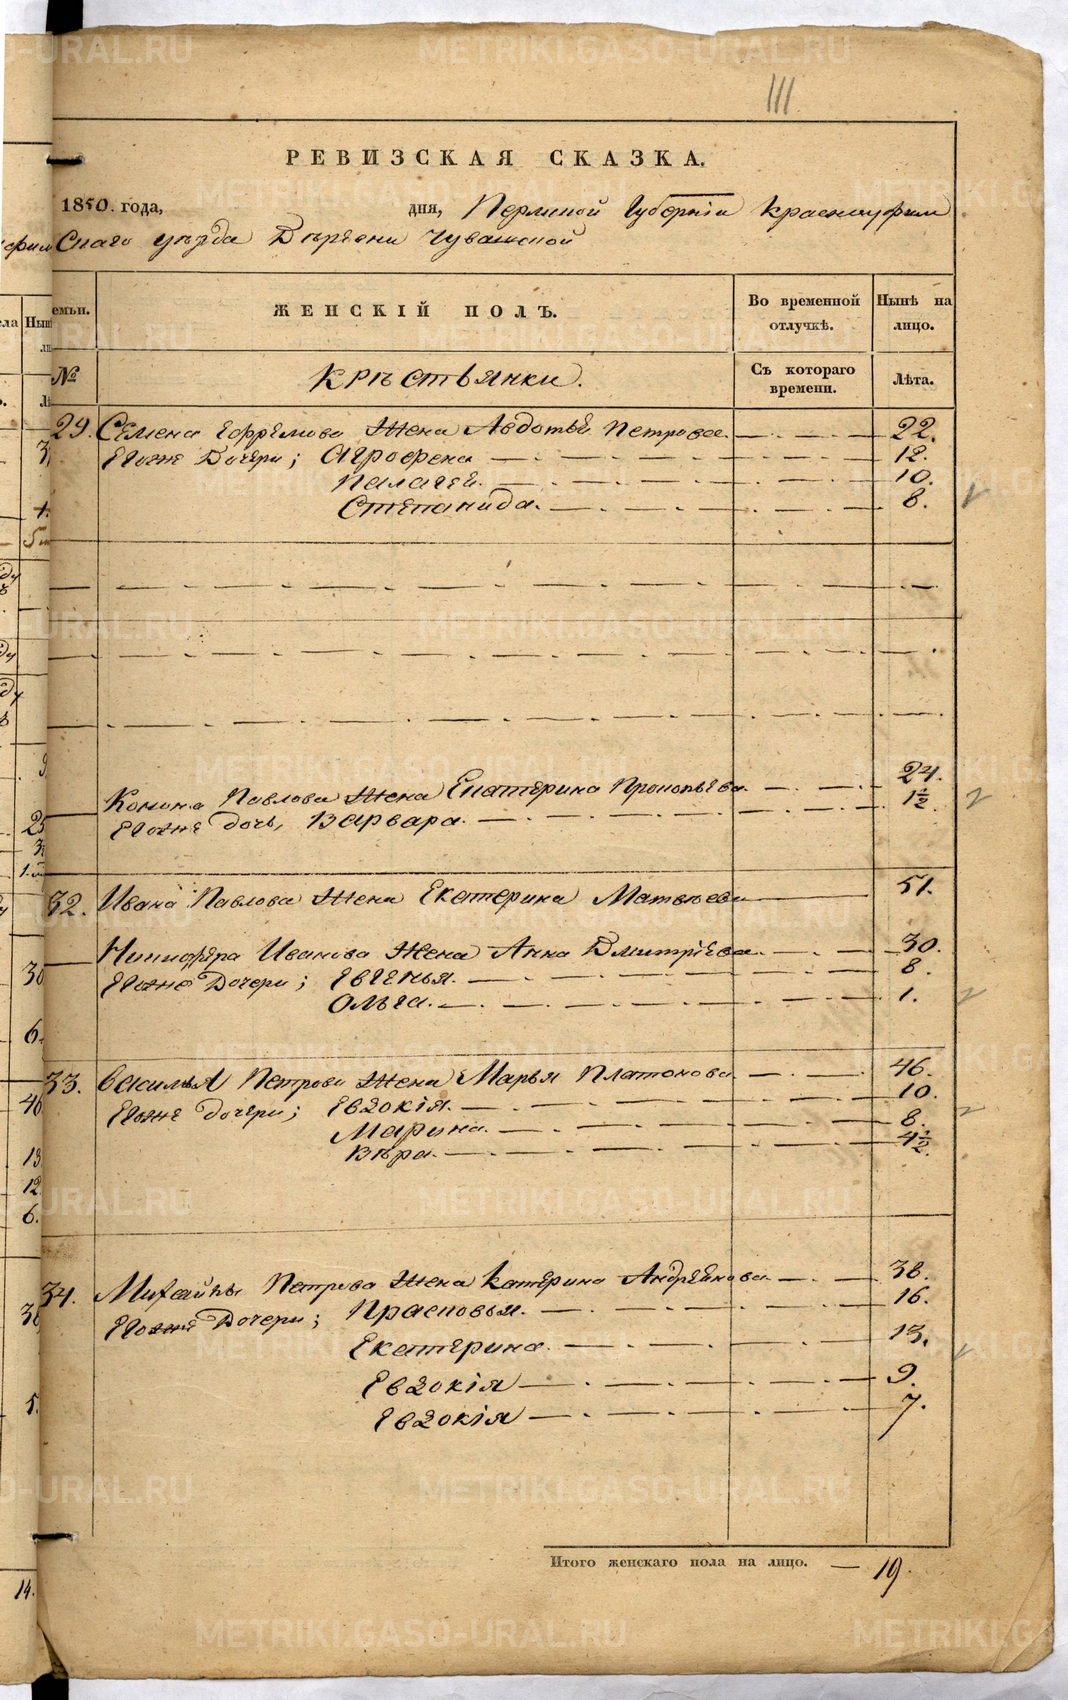 111
РЕВИЗСКАЯ СКАЗКА.
1850. года, дня, Пермской Губерніи Красноуфим
скаго уѣзда Деревни Чувашской
емьи. ЖЕНСКІЙ ПОЛЪ. Во временной отлучкѣ. Нынѣ на лицо.
№ Крѣстьянки. Съ котораго времени. Лѣта.
29. Семена Ефремова жена Авдотья Петрова 22.
Егожъ дочери; Агрофена 12.
Палагея. 10.
Степанида. 8.
Конона Павлова жена Екатерина Прокопьева 24.
Егожъ дочь, Варвара. 1½.
32. Ивана Павлова жена Екатерина Матвѣева 51.
Никифера Иванова жена Анна Дмитріева 30.
Егожъ дочери; Евгенья. 8.
Ольга. 1.
33. Василья Петрова жена Марья Платонова 46.
Егожъ дочери; Евдокія. 10.
Марина. 8.
Вѣра. 4½.
34. Михайлы Петрова жена Катерина Андреянова 38.
Егожъ дочери; Прасковья. 16.
Екатерина. 13.
Евдокія 9.
Евдокія 7.
Итого женскаго пола на лицо. — 19.
METRIKI.GASO-URAL.RU